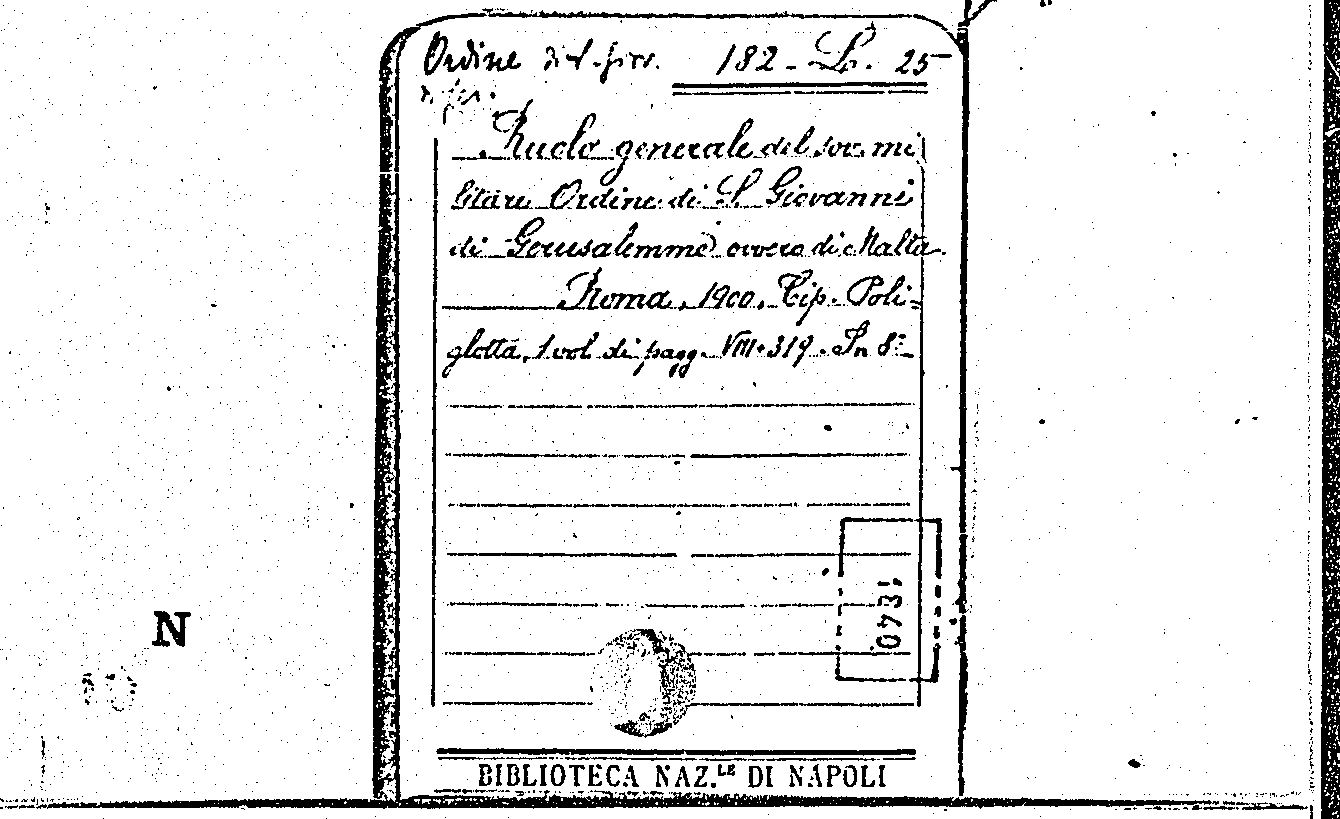 Ordine 182 - Lo. 25
Ruolo generale del sov. mi
litare Ordine di S. Giovanni
di Gerusalemme ovvero di Malta.
Roma, 1900. Tip. Poli-
glotta, 1 vol. di pagg. VIII-319. In 8º
N
BIBLIOTECA NAZ.LE DI NAPOLI